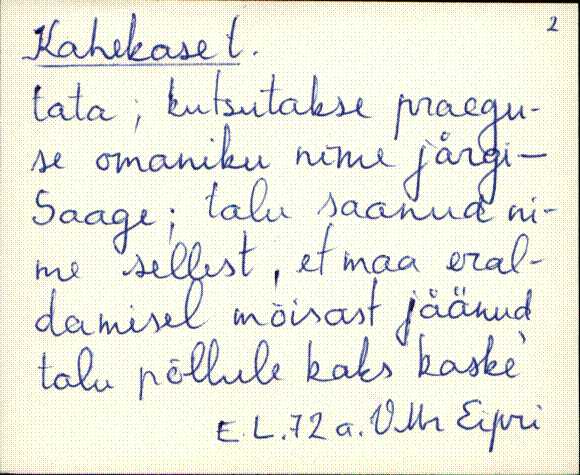 2
Kahekase t.
tata; kutsutakse praegu-
se omaniku nime järgi-
Saage; talu saanud ni-
me sellest, et maa eral-
damisel mõisast jäänud
talu põllule kaks kaske
E.L. 72 a. VMr Eipri